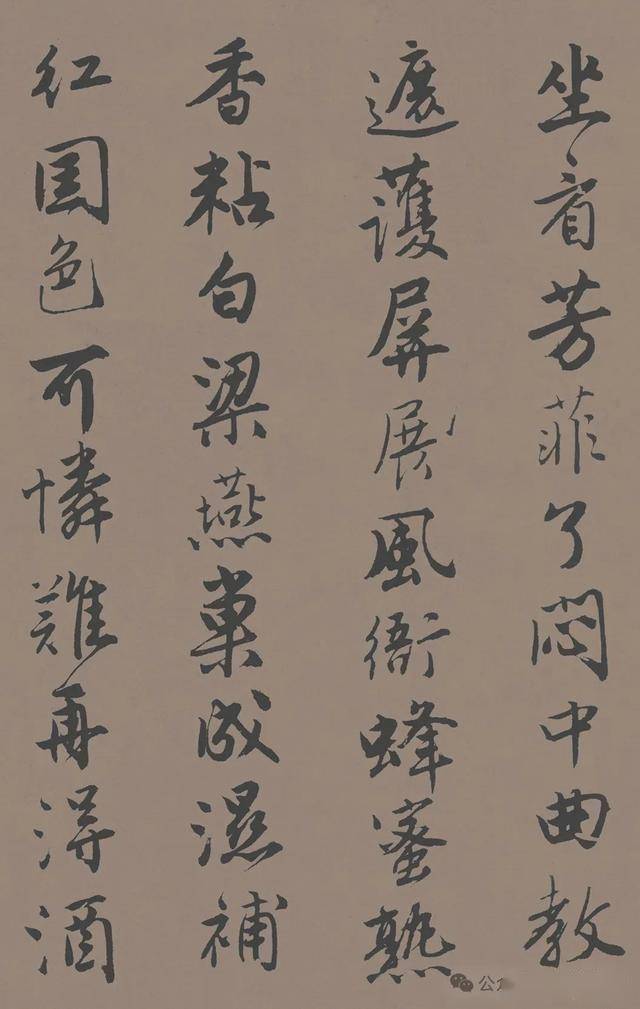 坐看芳菲了悶中曲教
遮護屏展風衙蜂蜜熟
香粘白梁燕巢成濕補
紅国色可憐難再得酒
公